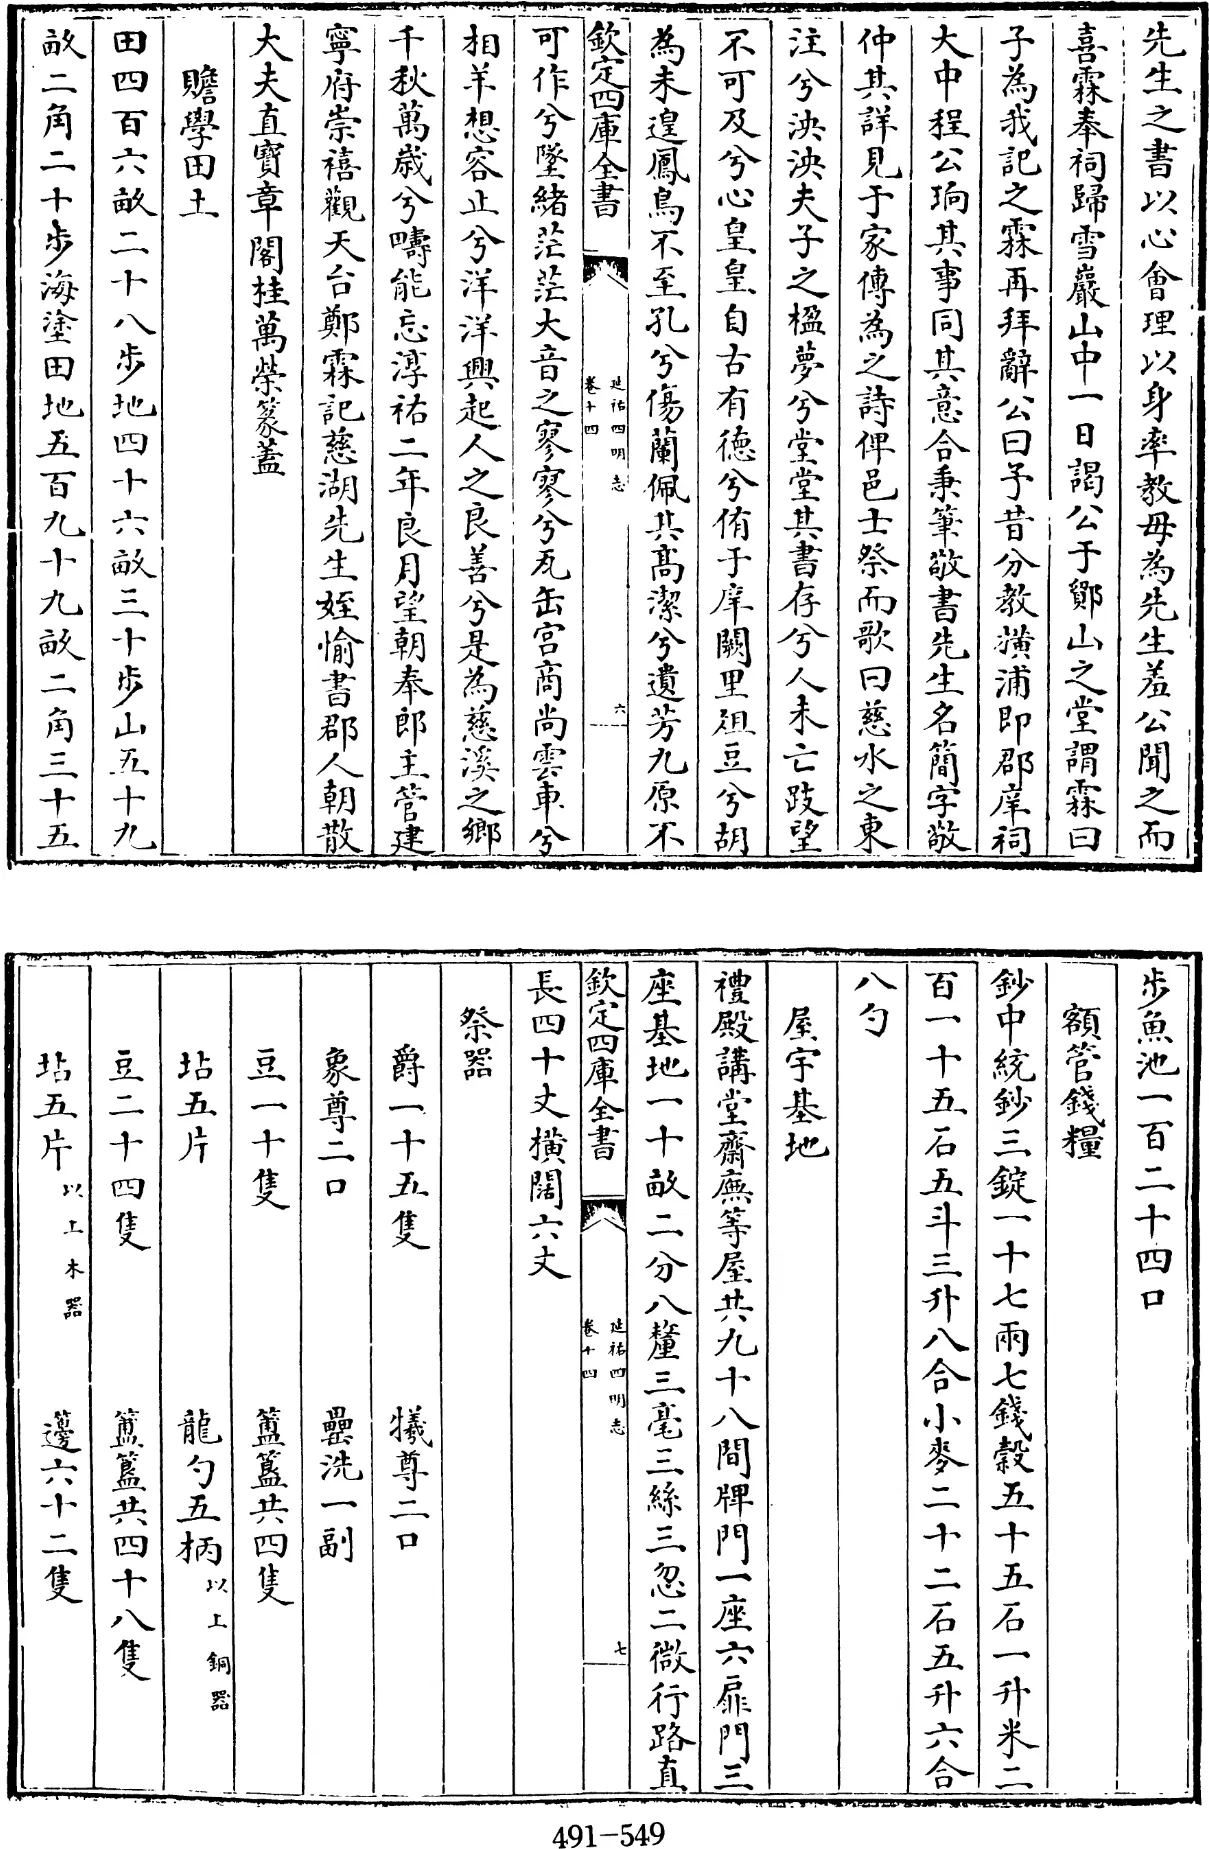 先生之書以心會理以身率教毋為先生羞公聞之而
喜霖奉祠歸雪巖山中一日謁公于鄮山之堂謂霖曰
子為我記之霖再拜辭公曰子昔分教橫浦即郡庠祠
大中程公珦其事同其意合秉筆敬書先生名簡字敬
仲其詳見于家傳為之詩俾邑士祭而歌曰慈水之東
注兮泱泱夫子之楹夢兮堂堂其書存兮人未亡跂望
不可及兮心皇皇自古有德兮侑于庠闕里俎豆兮胡
為未遑鳳鳥不至孔兮傷蘭佩其高潔兮遺芳九原不
欽定四庫全書
延祐四明志
卷十四
六
可作兮墜緒茫茫大音之寥寥兮瓦缶宮商尚雲車兮
相羊想容止兮洋洋興起人之良善兮是為慈溪之鄉
千秋萬歲兮疇能忘淳祐二年良月望朝奉郎主管建
寧府崇禧觀天台鄭霖記慈湖先生姪愉書郡人朝散
大夫直寶章閣桂萬榮篆蓋
贍學田土
田四百六畝二十八步地四十六畝三十步山五十九
畝二角二十步海塗田地五百九十九畝二角三十五
步魚池一百二十四口
額管錢糧
鈔中統鈔三錠一十七兩七錢穀五十五石一升米二
百一十五石五斗三升八合小麥二十二石五升六合
八勺
屋宇基地
禮殿講堂齋廡等屋共九十八間牌門一座六扉門三
座基地一十畝二分八釐三毫三絲三忽二微行路直
欽定四庫全書
延祐四明志
卷十四
七
長四十丈橫闊六丈
祭器
爵一十五隻 犧尊二口
象尊二口 罍洗一副
豆一十隻 簠簋共四隻
坫五片 龍勺五柄以上銅器
豆二十四隻 簠簋共四十八隻
坫五片以上木器 籩六十二隻
491-549